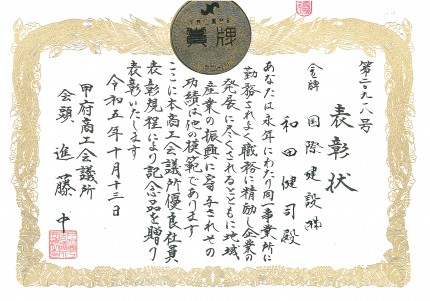 賞牌
第二九八号
表彰状
金牌 国際建設㈱
和田健司殿
あなたは永年にわたり同一事業所に
勤務されよく職務に精励し企業の
発展に尽くされるとともに地域
産業の振興に寄与されその
功績は他の模範であります
ここに本商工会議所優良社員
表彰規程により記念品を贈り
表彰いたします
令和五年十月十三日
甲府商工会議所
会頭 進藤中